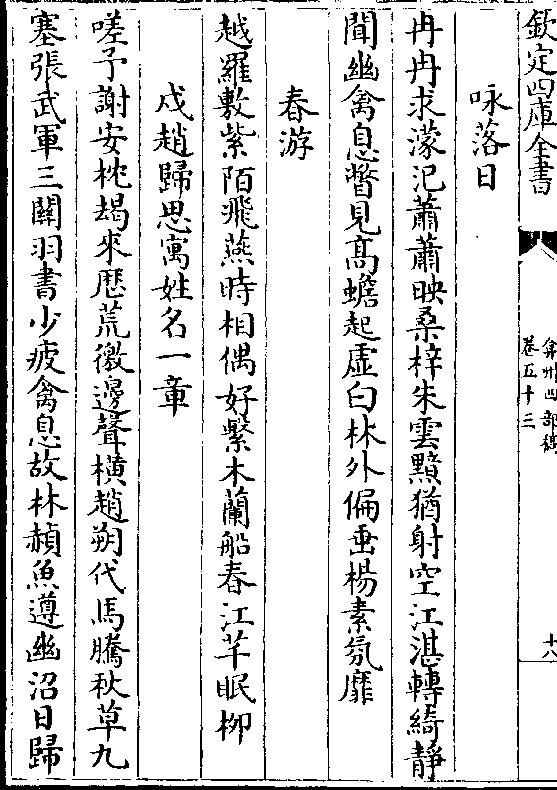 欽定四庫全書
弇州四部稿
卷五十三
十八
咏落日
冉冉求濛汜蕭蕭映桑梓朱雲黯猶射空江湛轉綺靜
聞幽禽息瞥見高蟾起虛白林外偏垂楊素氛靡
春游
越羅敷紫陌飛燕時相偶好繫木蘭船春江芊眠柳
戍趙歸思寓姓名一章
嗟予謝安枕朅來歷荒徼邊聲橫趙朔代馬騰秋草九
塞張武軍三關羽書少疲禽息故林赬魚遵幽沼日歸